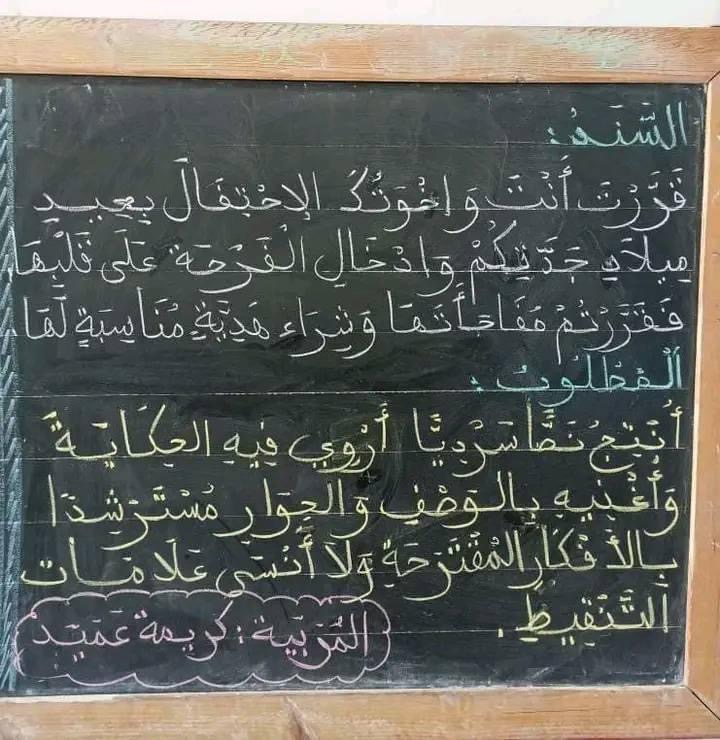 السَّنَدُ:
قَرَّرْتَ أَنْتَ وَإخْوَتُكَ الاِحْتِفَالَ بِعِيدِ
مِيلَادِ جَدَّتِكُمْ وَإدْخَالِ الْفَرْحَةِ عَلَى قَلْبِهَا،
فَقَرَّرْتُمْ مُفَاجَأَتَهَا وَشِرَاء هَدِيَّةٍ مُنَاسِبَةٍ لَهَا.
الْمَطْلُوبُ:
أُنْتِجُ نَصًّا سَرْدِيًّا أَرْوِي فِيهِ الحِكَايَةَ
وَأُغْنِيهِ بِالْوَصْفِ وَالْحِوَارِ مُسْتَرْشِدًا
بِالأَفْكَارِ المُقْتَرَحَةِ وَلَا أَنْسَى عَلَامَاتِ
التَّنْقِيطِ.
المُرَبِّيَة: كريمة عَمَيَد